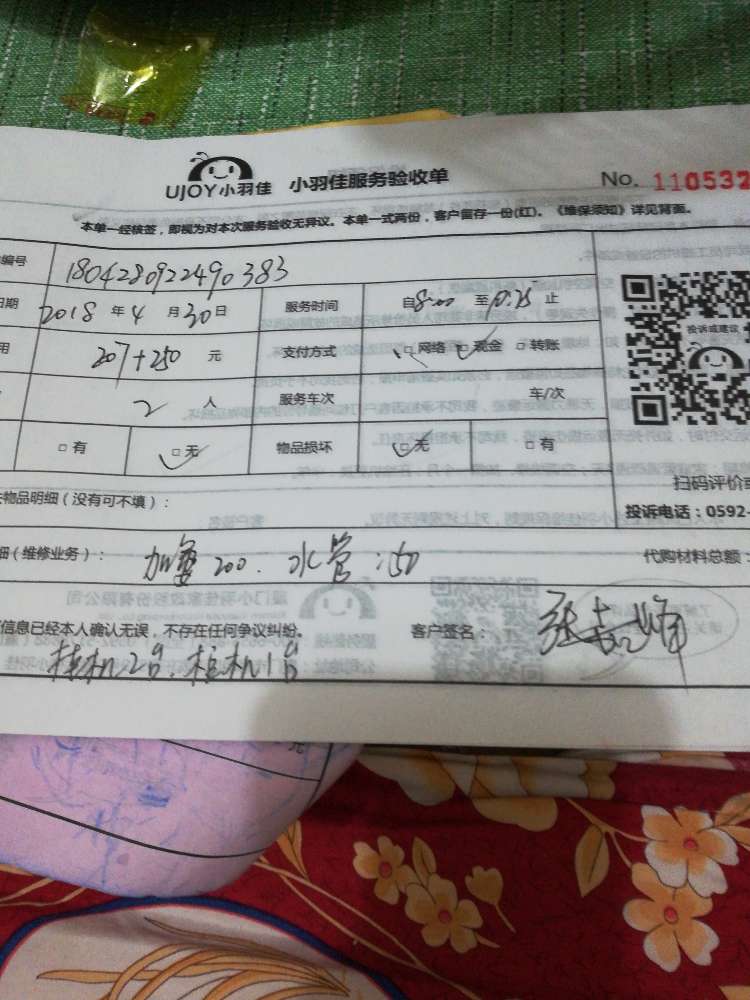 UJOY小羽佳 小羽佳服务验收单 No. 110532
本单一经核签，即视为对本次服务验收无异议。本单一式两份，客户留存一份(红)。《维保须知》详见背面。
编号 180428092490383
日期 2018 年 4 月 30 日 服务时间 自8:00 至10:25 止
用 207+250 元 支付方式 □网络 □现金 □转账
2 人 服务车次 车/次
□有 □无 物品损坏 □无 □有
投诉或建议
扫码评价或
物品明细（没有可不填）：
投诉电话：0592-
细（维修业务）： 200. 水管:50
代购材料总额：
信息已经本人确认无误，不存在任何争议纠纷。 客户签名：
挂机2台. 柜机1台
元